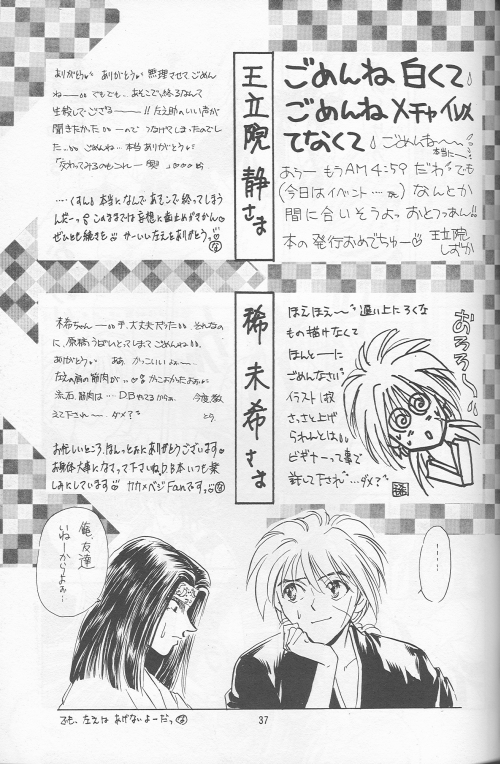 王立院 静さま
ごめんね 白くて
ごめんね メチャイソメ
てなくて
ごめんね〜〜
本当に〜
おぅー もうAM4:59 だわ でも
(今日はイベント…)なんとか
間に合いそうよっ おとっつぁん!!
本の発行おめでちゅー♡ 王立院
しずか
ありがとう ありがとう 無理させて ごめん
ねー でもでも、あそこで終るなんて
生殺しでござる〜〜!! 左之助のいい声が
聞きたかった ーので つなげてしまったのでし
た ごめんね… 本当ありがとう
…くすん 本当になんで あそこで 終ってしまう
んだーっ このままでは妄想に歯止めがきかん
ぜひとも続きを かーいい左えをありがとうっ
稀 未希さま
ほえほえ〜 遅い上にろくな
もの描けなくて
ほんとーに
ごめんなさい
イラスト1枚
さっさと上げ
られんとは
ビギナーって事で
許して下され …ダメ?
稀
おろろ〜
未希ちゃん 大丈夫だった それなの
に、原稿うばいとってしまって ごめんね
ありがとう ああ、かっこいいよぉ
左えの肩の筋肉が かっこよかったよぉ
流石 筋肉は… D.Bやってるからぁ 今度、教
えて下され ダメ?
とら
お忙しいところ、ほんっとおにありがとうございます
お身体大事になさって下さいね D.B本いつも楽
しみにしています カカ×ベジFanですっ
俺、友達
いねーからよぉ〜
……
でも、左えは あげないよーだっ
37